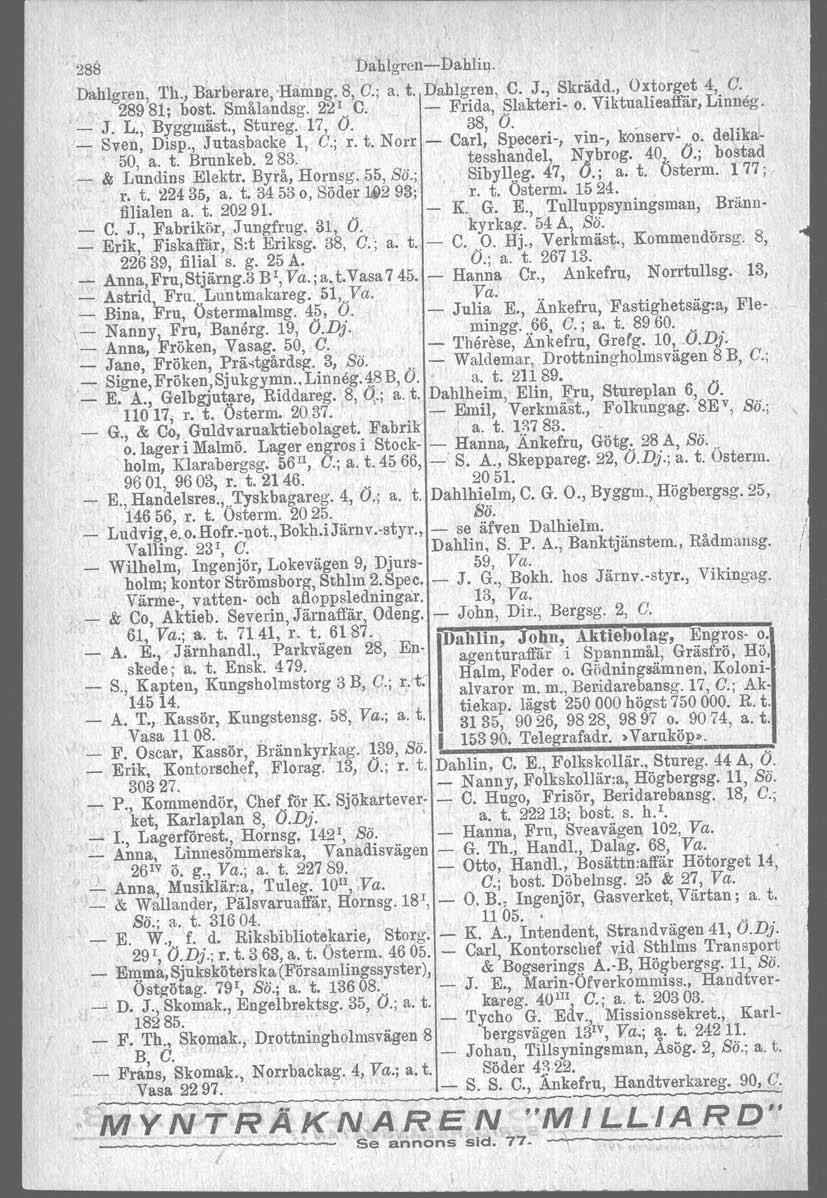 288
Dahlgren—Dahlin.
Dahlgren, Th., Barberare, Hamng. 8, C.; a. t.
289 81; bost. Smålandsg. 22 I C.
— J. L., Byggmäst., Stureg. 17, Ö.
— Sven, Disp., Jutasbacke 1, C.; r. t. Norr
50, a. t. Brunkeb. 2 83.
— & Lundins Elektr. Byrå, Hornsg. 55, Sö.;
r. t. 224 35, a. t. 34 53 o, Söder 102 93;
filialen a. t. 202 91.
— C. J., Fabrikör, Jungfrug. 31, Ö.
— Erik, Fiskaffär, S:t Eriksg. 38, C.; a. t.
226 39, filial s. g. 25 A.
— Anna, Fru, Stjärng. 3 B I, Va.; a. t. Vasa 7 45.
— Astrid, Fru. Luntmakareg. 51, Va.
— Bina, Fru, Östermalmsg. 45, Ö.
— Nanny, Fru, Banérg. 19, Ö.Dj.
— Anna, Fröken, Vasag. 50, C.
— Jane, Fröken, Prästgårdsg. 3, Sö.
— Signe, Fröken, Sjukgymn., Linnég. 48 B, Ö.
— E. A., Gelbgjutare, Riddareg. 8, Ö.; a. t.
110 17, r. t. Österm. 20 37.
— G., & Co, Guldvaruaktiebolaget. Fabrik
o. lager i Malmö. Lager engros i Stock-
holm, Klarabergsg. 56 II, C.; a. t. 45 66,
96 01, 96 03, r. t. 21 46.
— E., Handelsres., Tyskbagareg. 4, Ö.; a. t.
146 56, r. t. Österm. 20 25.
— Ludvig, e. o. Hofr.-not., Bokh. i Järnv.-styr.,
Valling. 23 I, C.
— Wilhelm, Ingenjör, Lokevägen 9, Djurs-
holm; kontor Strömsborg, Sthlm 2. Spec.
Värme-, vatten- och afloppsledningar.
— & Co, Aktieb. Severin, Järnaffär, Odeng.
61, Va.; a. t. 71 41, r. t. 61 87.
— A. E., Järnhandl., Parkvägen 28, En-
skede; a. t. Ensk. 4 79.
— S., Kapten, Kungsholmstorg 3 B, C.; r. t.
145 14.
— A. T., Kassör, Kungstensg. 58, Va.; a. t.
Vasa 11 08.
— F. Oscar, Kassör, Brännkyrkag. 139, Sö.
— Erik, Kontorschef, Florag. 13, Ö.; r. t.
303 27.
— P., Kommendör, Chef för K. Sjökartever-
ket, Karlaplan 8, Ö.Dj.
— I., Lagerförest., Hornsg. 142 I, Sö.
— Anna, Linnesömmerska, Vanadisvägen
26 IV ö. g., Va.; a. t. 227 89.
— Anna, Musiklär:a, Tuleg. 10 II, Va.
— & Wallander, Pälsvaruaffär, Hornsg. 18 I,
Sö.; a. t. 316 04.
— E. W., f. d. Riksbibliotekarie, Storg.
29 I, Ö.Dj.; r. t. 3 63, a. t. Österm. 46 05.
— Emma, Sjuksköterska (Församlingssyster),
Östgötag. 79 I, Sö.; a. t. 136 08.
— D. J., Skomak., Engelbrektsg. 35, Ö.; a. t.
182 85.
— F. Th., Skomak., Drottningholmsvägen 8
B, C.
— Frans, Skomak., Norrbackag. 4, Va.; a. t.
Vasa 22 97.
Dahlgren, C. J., Skrädd., Oxtorget 4, C.
— Frida, Slakteri- o. Viktualieaffär, Linnég.
38, Ö.
— Carl, Speceri-, vin-, konserv- o. delika-
tesshandel, Nybrog. 40, Ö.; bostad
Sibylleg. 47, Ö.; a. t. Österm. 1 77;
r. t. Österm. 15 24.
— K. G. E., Tulluppsyningsman, Bränn-
kyrkag. 54 A, Sö.
— C. O. Hj., Verkmäst., Kommendörsg. 8,
Ö.; a. t. 267 13.
— Hanna Cr., Ankefru, Norrtullsg. 13,
Va.
— Julia E., Änkefru, Fastighetsäg:a, Fle-
mingg. 66, C.; a. t. 89 60.
— Thérèse, Änkefru, Grefg. 10, Ö.Dj.
— Waldemar, Drottningholmsvägen 8 B, C.;
a. t. 211 89.
Dahlheim, Elin, Fru, Stureplan 6, Ö.
— Emil, Verkmäst., Folkungag. 8E V, Sö.;
a. t. 137 83.
— Hanna, Änkefru, Götg. 28 A, Sö.
— S. A., Skeppareg. 22, Ö.Dj.; a. t. Österm.
20 51.
Dahlhielm, C. G. O., Byggm., Högbergsg. 25,
Sö.
— se äfven Dalhielm.
Dahlin, S. P. A., Banktjänstem., Rådmansg.
59, Va.
— J. G., Bokh. hos Järnv.-styr., Vikingag.
13, Va.
— John, Dir., Bergsg. 2, C.
Dahlin, John, Aktiebolag, Engros- o.
agenturaffär i Spannmål, Gräsfrö, Hö,
Halm, Foder o. Gödningsämnen, Koloni-
alvaror m. m., Beridarebansg. 17, C.; Ak-
tiekap. lägst 250 000 högst 750 000. R. t.
31 35, 90 26, 98 28, 98 97 o. 90 74, a. t.
153 90. Telegrafadr. »Varuköp».
Dahlin, C. E., Folkskollär., Stureg. 44 A, Ö.
— Nanny, Folkskollär:a, Högbergsg. 11, Sö.
— C. Hugo, Frisör, Beridarebansg. 18, C.;
a. t. 222 13; bost. s. h. I.
— Hanna, Fru, Sveavägen 102, Va.
— G. Th., Handl., Dalag. 68, Va.
— Otto, Handl., Bosättn:affär Hötorget 14,
C.; bost. Döbelnsg. 25 & 27, Va.
— O. B., Ingenjör, Gasverket, Värtan; a. t.
11 05.
— K. A., Intendent, Strandvägen 41, Ö.Dj.
— Carl, Kontorschef vid Sthlms Transport
& Bogserings A.-B, Högbergsg. 11, Sö.
— J. E., Marin-Öfverkommiss., Handtver-
kareg. 40 III, C.; a. t. 203 03.
— Tycho G. Edv., Missionssekret., Karl-
bergsvägen 13 IV, Va.; a. t. 242 11.
— Johan, Tillsyningsman, Åsög. 2, Sö.; a. t.
Söder 43 22.
— S. S. C., Änkefru, Handtverkareg. 90, C.
MYNTRÄKNAREN "MILLIARD"
Se annons sid. 77.